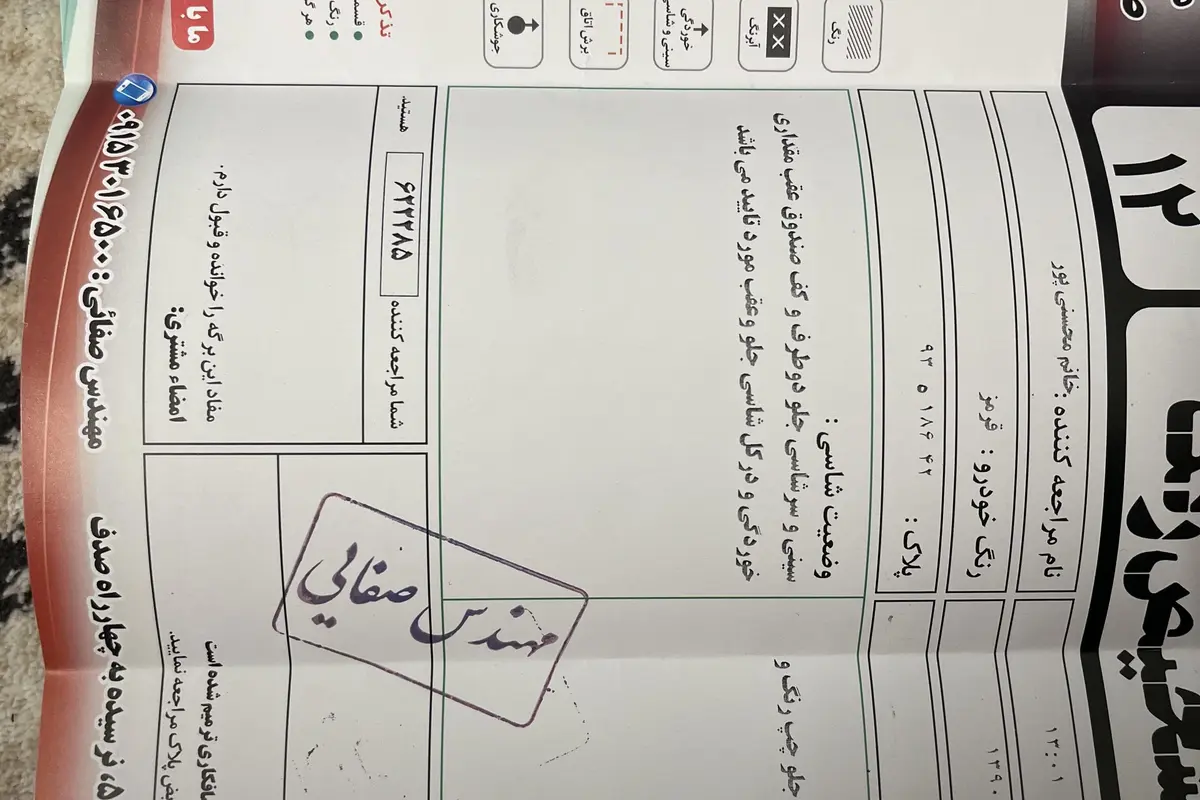 ۱۲
نام مراجعه کننده : خانم محسنی پور
۱۳:۰۱
رنگ خودرو : قرمز
۱۳۹۰
پلاک : ۹۳ ۵ ۱۸۶ ۴۲
وضعیت شاسی :
سینی و سرشاسی جلو دو طرف و کف صندوق عقب مقداری
خوردگی و در کل شاسی جلو و عقب مورد تایید می باشد
جلو چپ رنگ و
رنگ
آبرنگ
خوردگی
سینی و شاسی
برش اتاق
جوشکاری
شما مراجعه کننده ۶۲۲۲۸۵ هستید.
مفاد این برگه را خوانده و قبول دارم.
امضاء مشتری:
مهندس صفایی
صافکاری ترمیم شده است
پلاک مراجعه نمایید.
تذکر
قسمت
رنگ
هر گ
ما با
مهندس صفائی: ۰۹۱۵۳۰۱۶۵۰۰
۵، نرسیده به چهارراه صدف